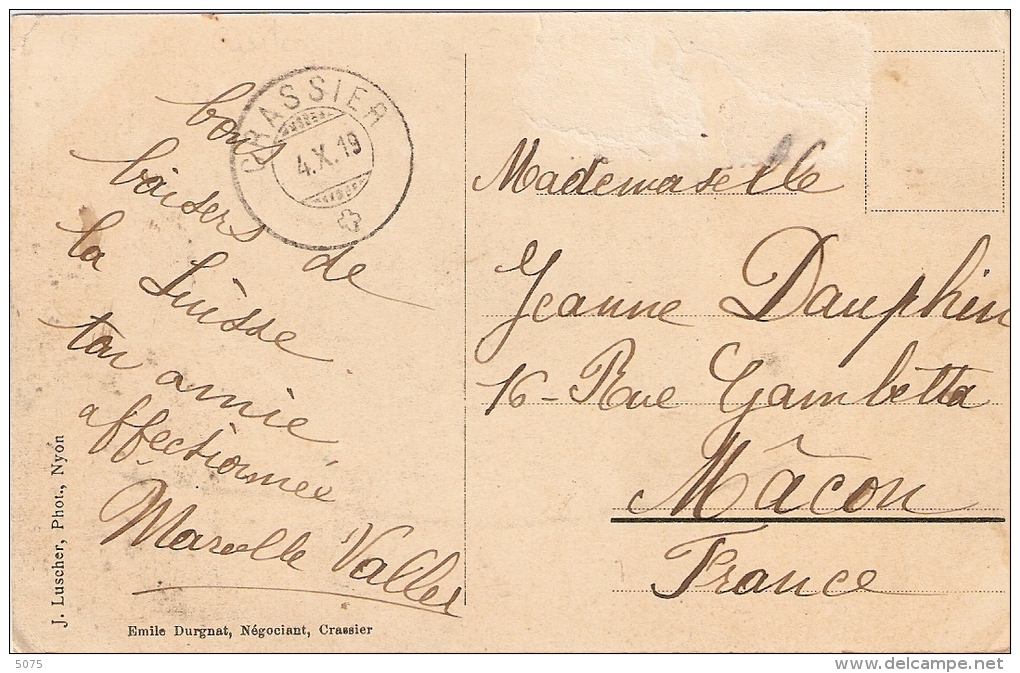 CRASSIER
4.X.19
bons
baisers de
la Suisse
ton amie
affectionnée
Marcelle Vallet
J. Luscher, Phot., Nyon
Emile Durgnat, Négociant, Crassier
Mademoiselle
Jeanne Dauphin
16 - Rue Gambetta
Mâcon
France
5075
www.delcampe.net